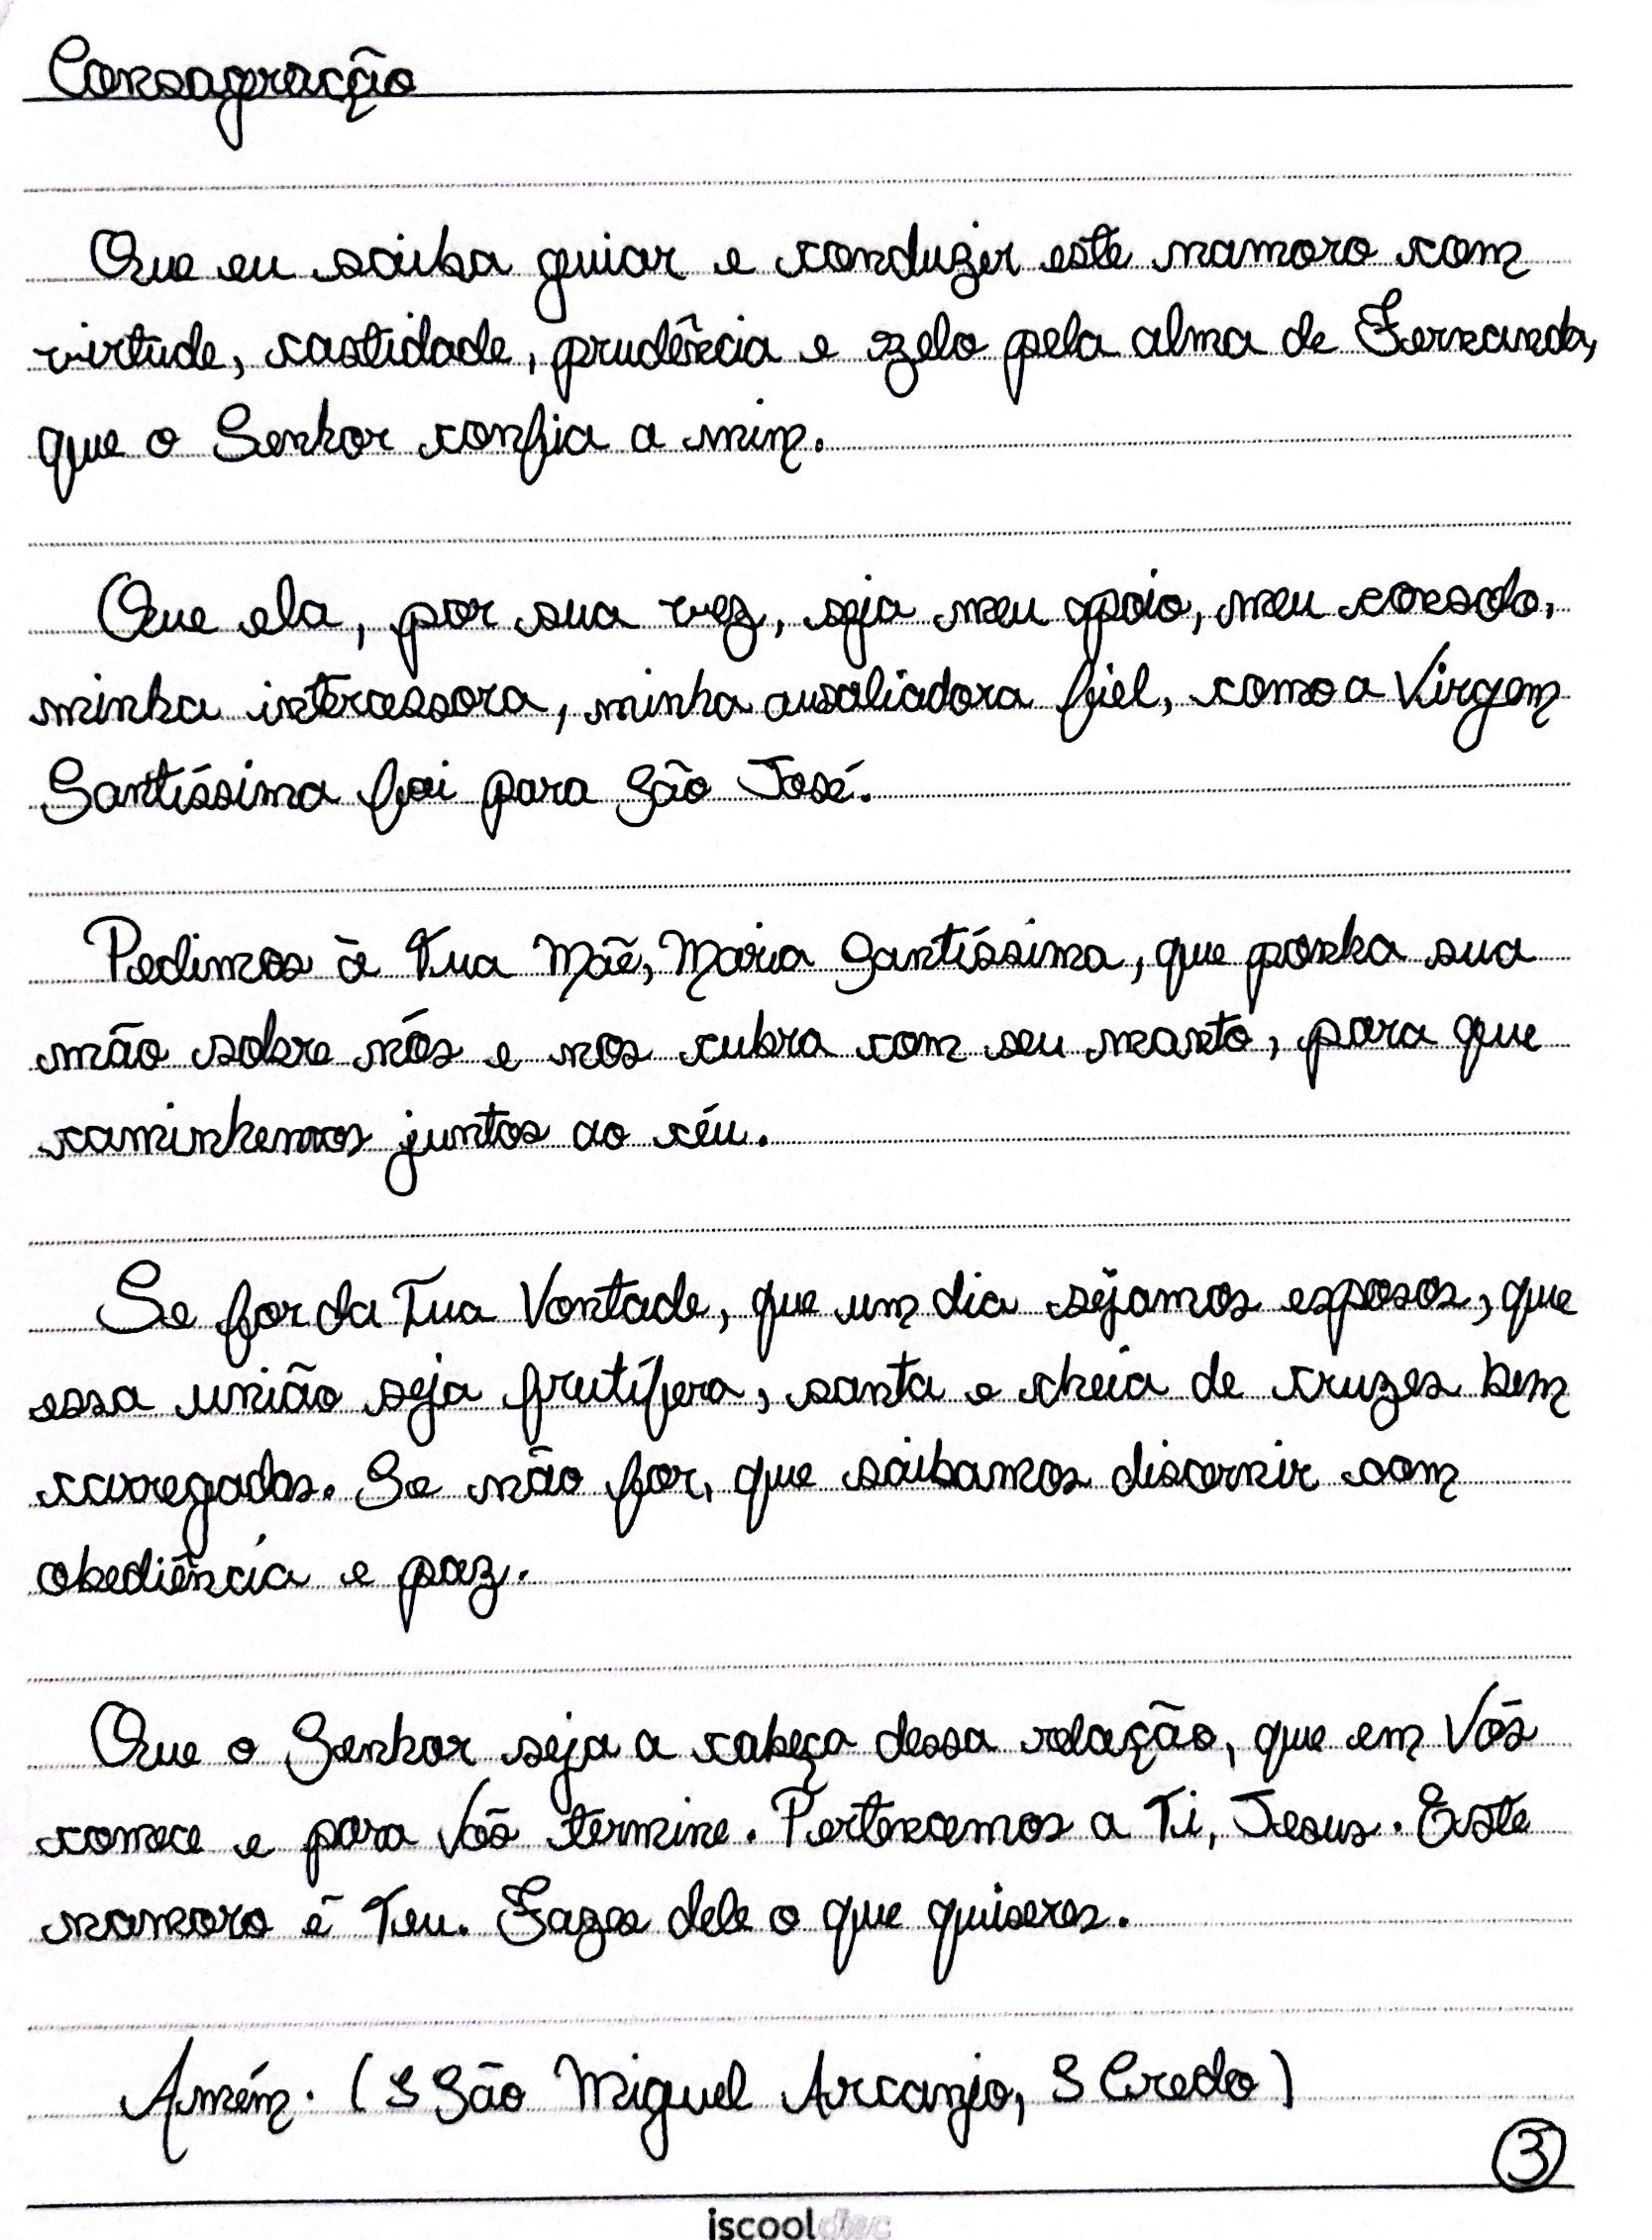 Consagração
Que eu saiba guiar e conduzir este namoro com
virtude, castidade, prudência e zelo pela alma de Fernanda,
que o Senhor confia a mim.
Que ela, por sua vez, seja meu apoio, meu consolo,
minha intercessora, minha auxiliadora fiel, como a Virgem
Santíssima foi para São José.
Pedimos à Tua Mãe, Maria Santíssima, que ponha sua
mão sobre nós e nos cubra com seu manto, para que
caminhemos juntos ao céu.
Se for da Tua Vontade, que um dia sejamos esposos, que
essa união seja frutífera, santa e cheia de cruzes bem
carregadas. Se não for, que saibamos discernir com
obediência e paz.
Que o Senhor seja a cabeça dessa relação, que em Vós
comece e para Vós termine. Pertencemos a Ti, Jesus. Este
namoro é Teu. Fazes dele o que quiseres.
Amém. (S São Miguel Arcanjo, S Credo)
3
iscool doc